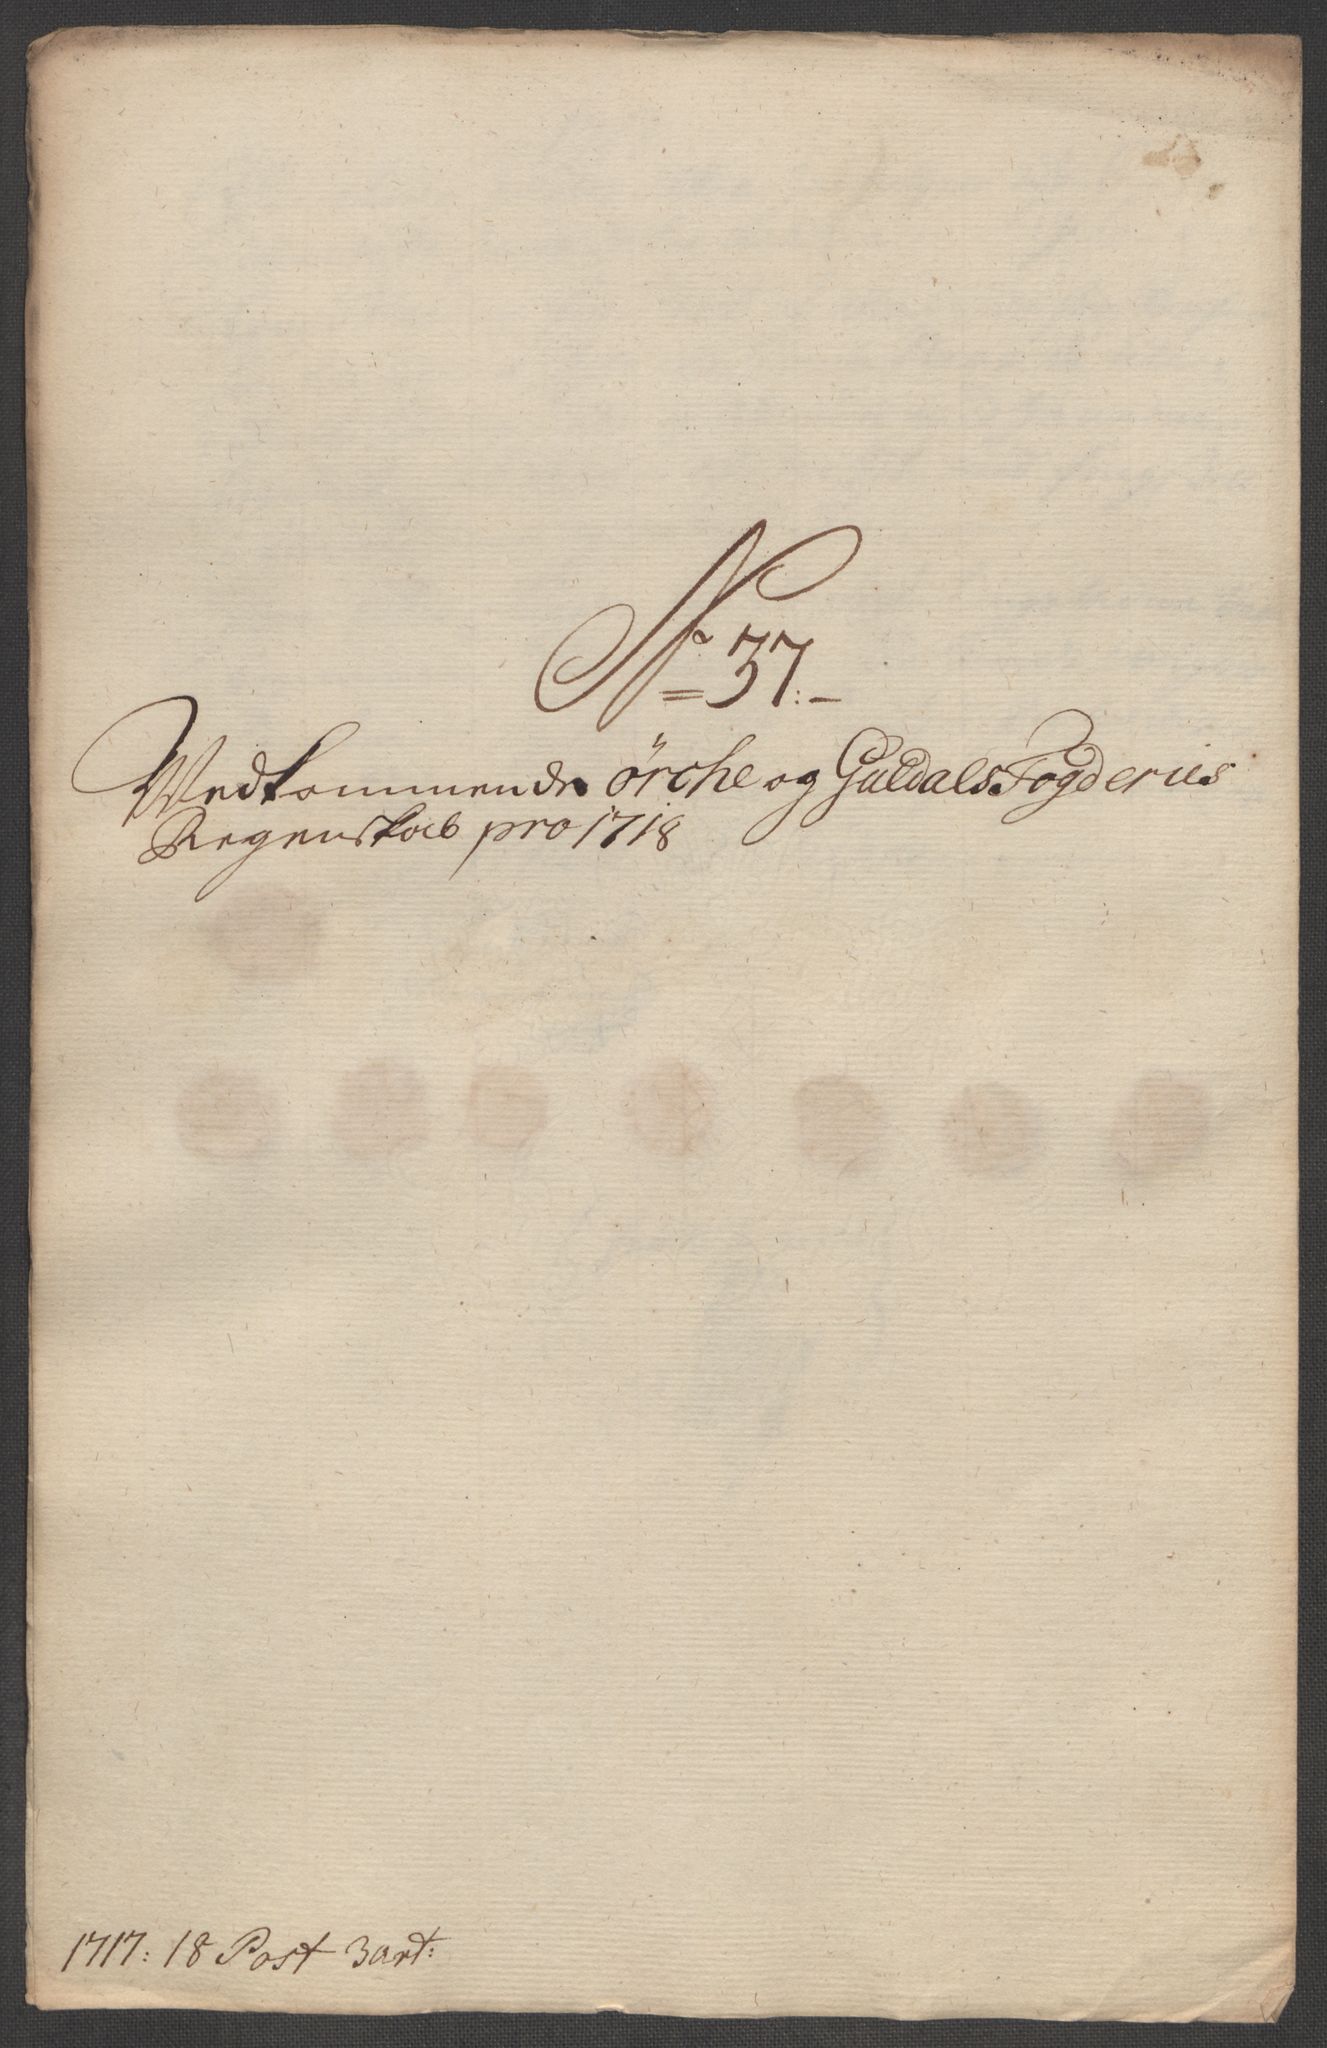 No 37:-
Vedkommende örche og Guldals Fogderies
Regenskab pro 1718
1717: 18 Post 3 art: